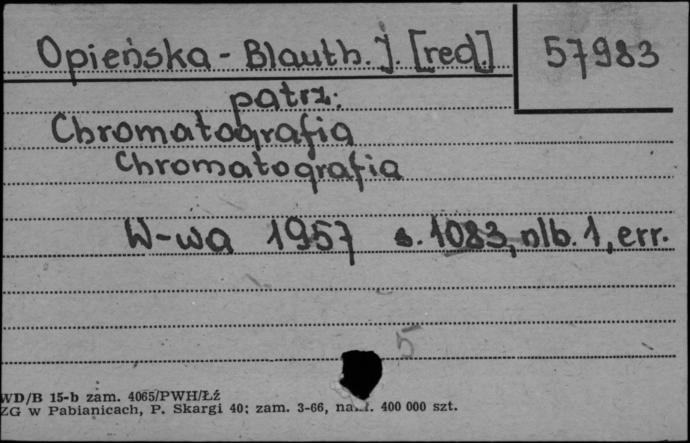 Opieńska-Blauth. J. [red.] 57983
patrz:
Chromatografia
Chromatografia
W-wa 1957 s. 1083, nlb. 1, err.
5
WD/B 15-b zam. 4065/PWH/Łź
ZG w Pabianicach, P. Skargi 40; zam. 3-66, 400 000 szt.